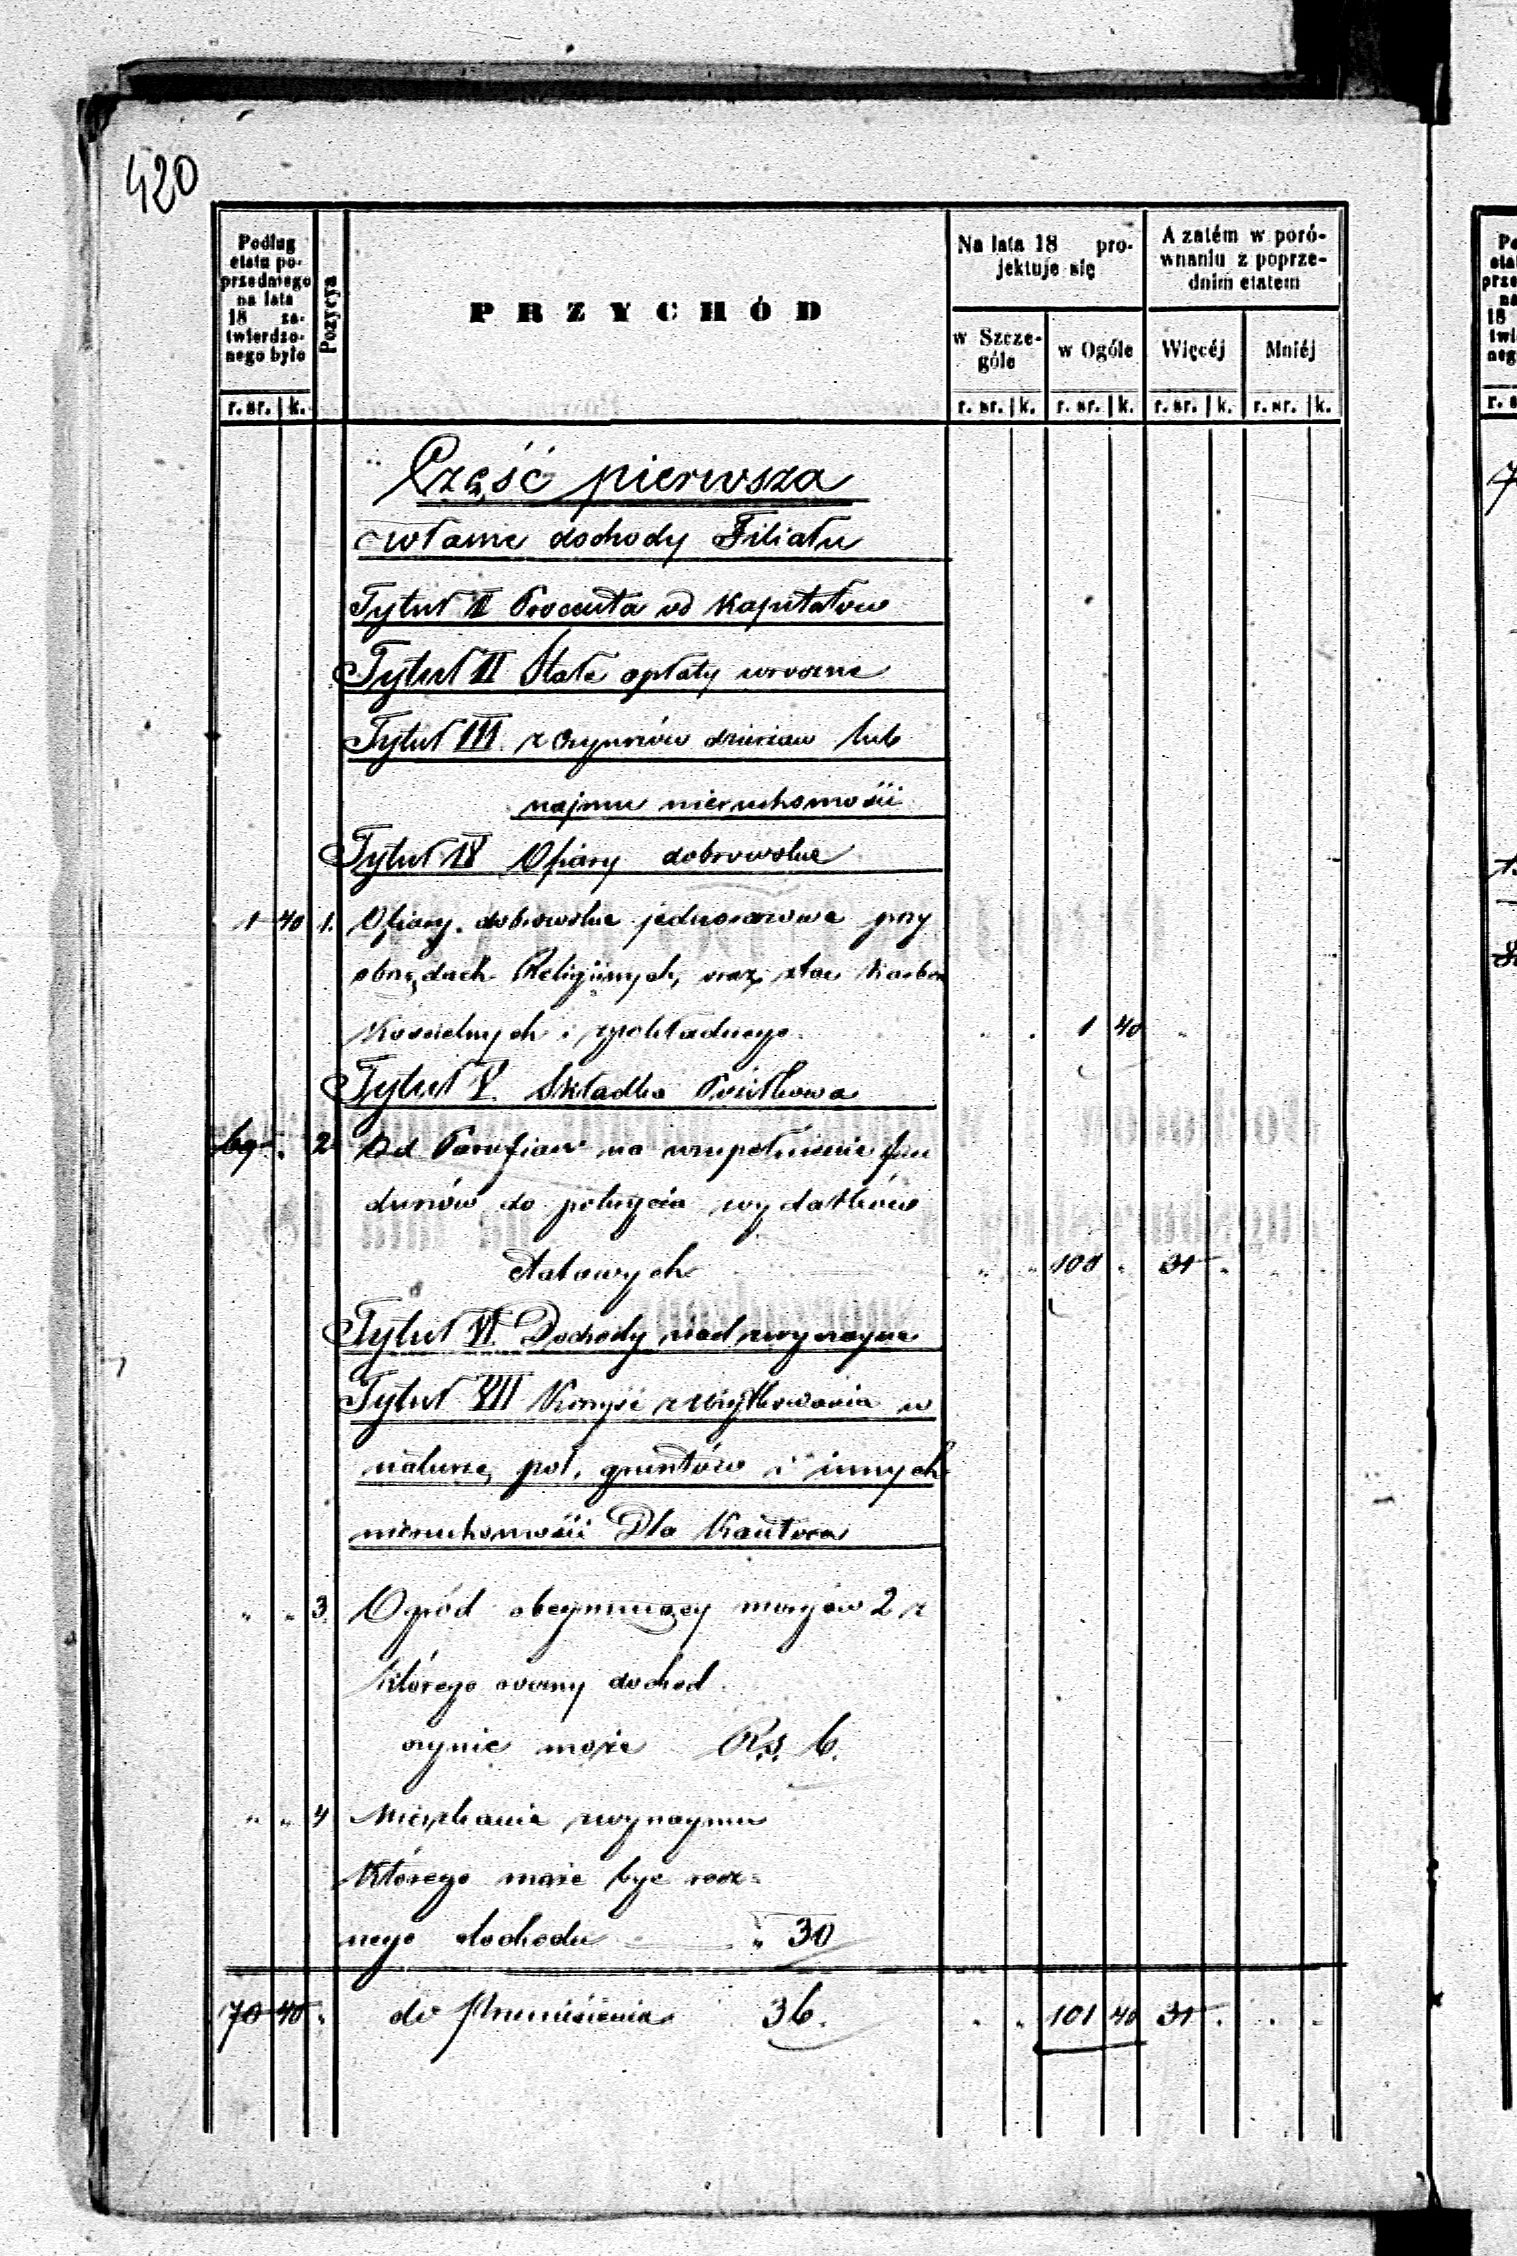 420
Podług etatu poprzedniego na lata 18 zatwierdzonego było
Pozycya
PRZYCHÓD
Na lata 18 projektuje się
A zatém w porównaniu z poprzednim etatem
w Szczególe
w Ogóle
Więcéj
Mniéj
r. sr. | k.
r. sr. | k. r. sr. | k. r. sr. | k. r. sr. | k.
Część pierwsza
własne dochody Filiału
Tytuł I Procenta od Kapitałow
Tytuł II Stałe opłaty wroczne
Tytuł III z Czynszów dzierzaw lub
najmu nieruchomości
Tytuł IV Ofiary dobrowolne
1 40 1. Ofiary dobrowolne jednorazowe przy
obrzędach Religijnych, oraz
Kościelnych i 1 40
Tytuł V. Składka
69 . 2 Od Parafian na uzupełnienie fun
duszów do pokrycia wydatków
etatowych " " 100 . 31 .
Tytuł VI. Dochody nadzwyczajne
Tytuł VII Korzyść z Użytkowania w
naturze, pól, gruntów i innych
nieruchomości Dla Kantora
" " 3. Ogród obejmujący morgów 2 z
Którego roczny dochód
czynić może Rs. 6.
" " 4 Mieszkanie z wynajmu
Którego może być rocz=
nego dochodu " 30
70 40 . do Przeniesienia 36. . . 101 40 31 . . .